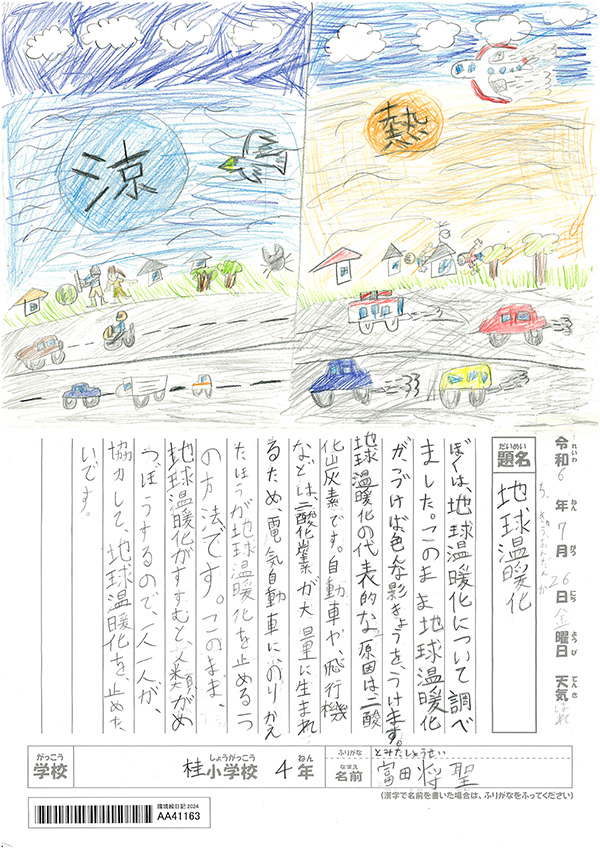 涼
熱
令和6年7月26日金曜日 天気はれ
れいわ ねん がつ にち ようび てんき
だいめい
題名
地球温暖化
ち きゅうおんだんか
ぼくは、地球温暖化について調べ
ました。このまま地球温暖化
がつづけば色んな影きょうを、うけます。
地球温暖化の代表的な原因は二酸
化炭素です。自動車や、飛行機
などは、二酸化炭素が大量に生まれ
るため、電気自動車に、のりかえ
たほうが地球温暖化を止める一つ
の方法です。このまま、
地球温暖化がすすむと、人類がめ
つぼうするので一人一人が、
協力して、地球温暖化を、止めた
いです。
がっこう
学校
しょうがっこう ねん
桂小学校 4年
ふりがな
とみたしょうせい
なまえ
名前
富田将聖
(漢字で名前を書いた場合は、ふりがなをふってください)
環境絵日記2024
AA41163